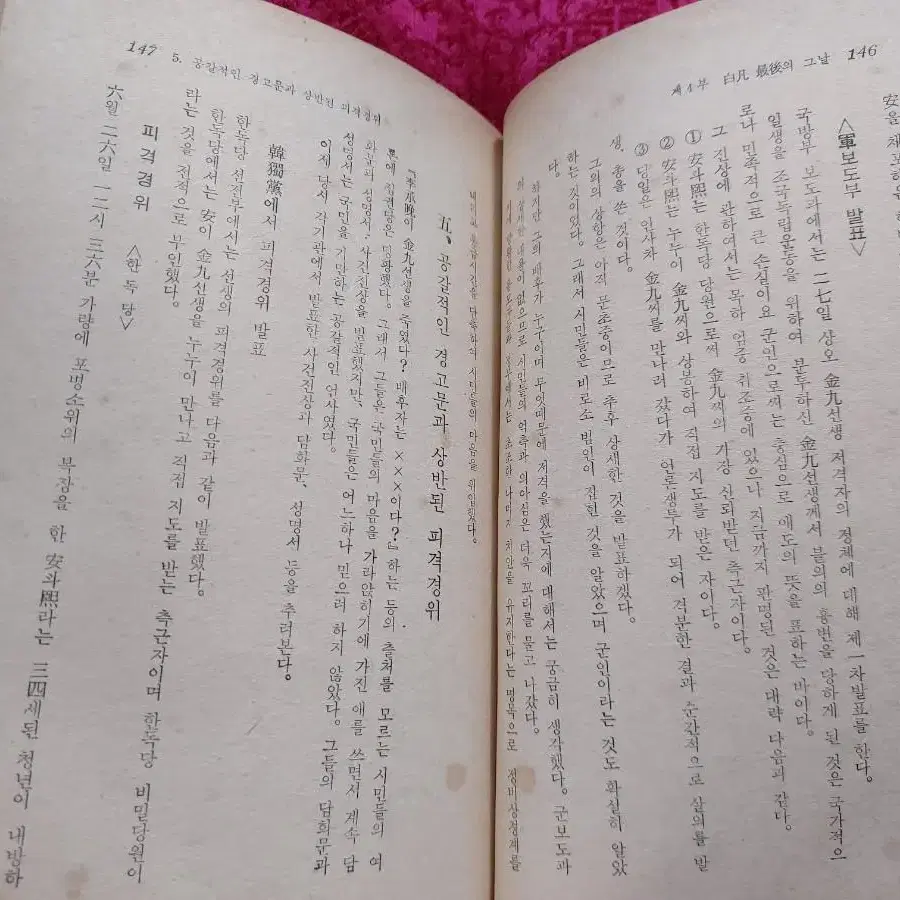 146
제4부 白凡 最後의 그날
安을 체포하
<軍보도부 발표>
국방부 보도과에서는 二七일 상오 金九선생 저격자의 정체에 대해 제一차발표를 한다.
일생을 조국독립운동을 위하여 분투하신 金九선생께서 불의의 흉변을 당하게 된 것은 국가적으
로나 민족적으로 큰 손실이요 군인으로써는 충심으로 애도의 뜻을 표하는 바이다.
그 진상에 관하여서는 목하 엄중 취조중에 있으나 지금까지 판명된 것은 대략 다음과 같다.
① 安斗熙는 한독당 당원으로써 金九씨의 가장 신뢰받던 측근자이다.
② 安斗熙는 누누이 金九씨와 상종하여 직접 지도를 받은 자이다.
③ 당일은 인사차 金九씨를 만나러 갔다가 언론쟁투가 되어 격분한 결과 순간적으로 살의를 발
생, 총을 쏜 것이다.
그외의 상항은 아직 문초중이므로 추후 상세한 것을 발표하겠다.
하는 것이었다. 그래서 시민들은 비로소 범인이 잡힌 것을 알았으며 군인이라는 것도 확실히 알았
다.
하지만 그의 배후가 누구이며 무엇때문에 저격을 했는지에 대해서는 궁금히 생각했다. 군보도과
의 상세한 내용이 없으므로 시민들의 억측과 의아심은 더욱 꼬리를 물고 나갔다.
치안을 유지한다는 명목으로 정비상경계를
147
5. 공갈적인 경고문과 상반된 피격경위
시민들의 마음을 위협했다.
五、공갈적인 경고문과 상반된 피격경위
『李承晩이 金九선생을 죽였다? 배후자는 ×××이다?』하는 등의 출처를 모르는 시민들의 여
론에 집권당은 당황했다. 그래서 그들은 국민들의 마음을 가라앉히기에 갖진 애를 쓰면서 계속 담
화문과 성명서、사건진상을 발표했지만、국민들은 어느하나 믿으려 하지 않았다。그들의 담화문과
성명서는 국민을 기만하는 공갈적인 언사였다。
이제 당시 각기관에서 발표한 사건진상과 담화문、성명서 등을 추려본다。
韓獨黨에서 피격경위 발표
한독당 선전부에서는 선생의 피격경위를 다음과 같이 발표했다。
한독당에서는 安이 金九선생을 누누이 만나고 직접 지도를 받는 측근자이며 한독당 비밀당원이
라는 것을 전적으로 부인했다。
피격경위 <한독당>
六월 二六일 一二시 三六분 가량에 포병소위의 복장을 한 安斗熙라는 三四세된 청년이 내방하